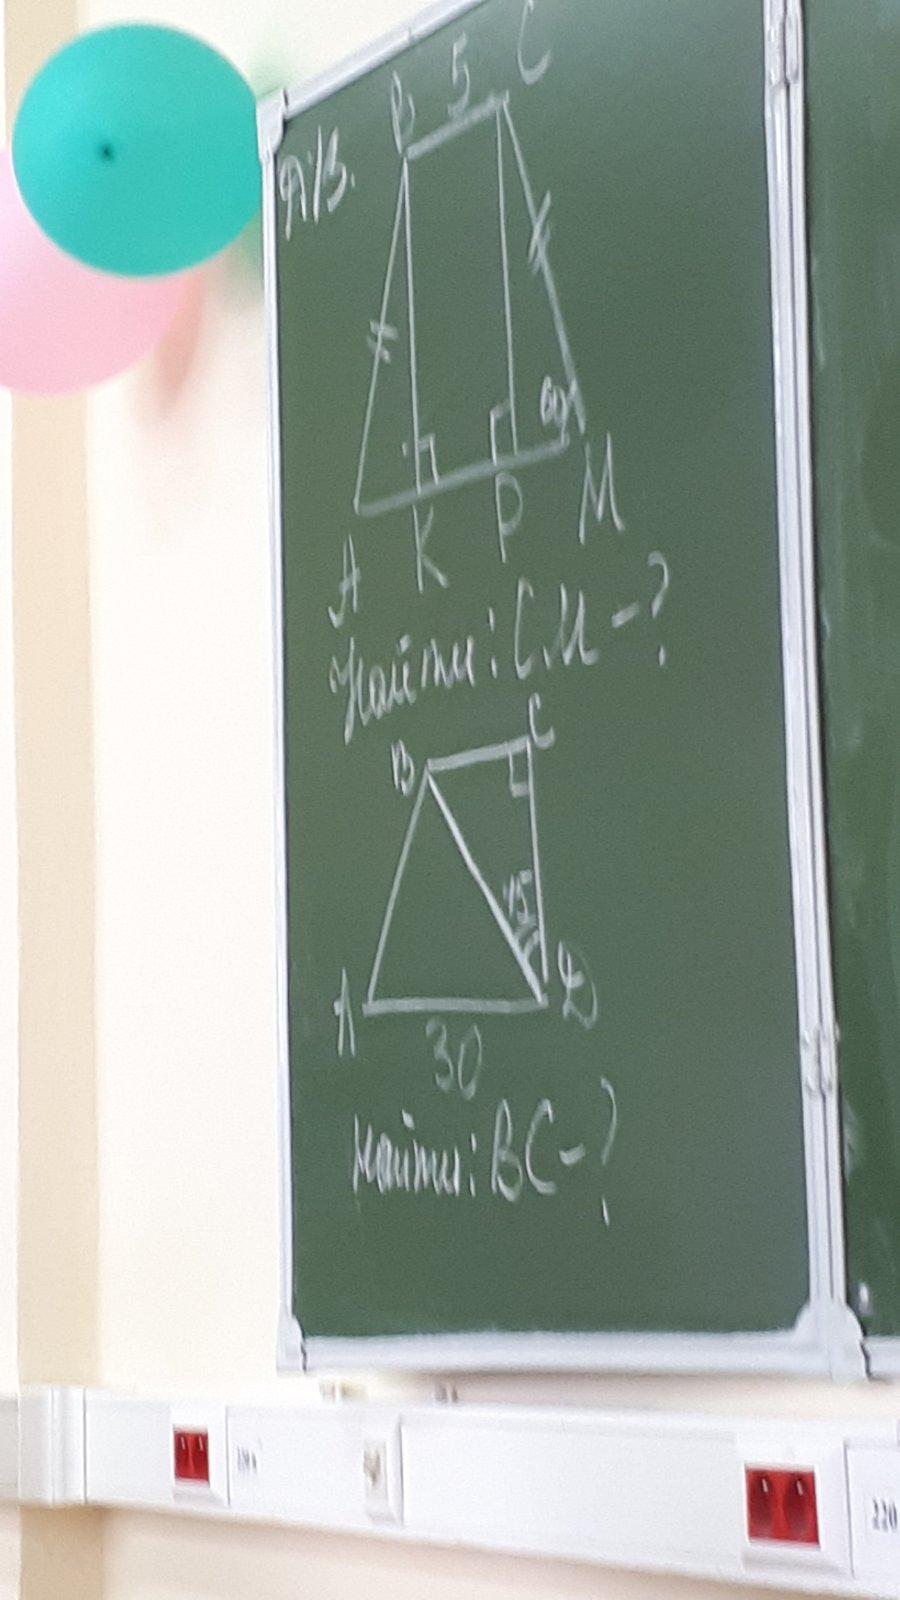 Д/З.
B 5 C
60°
A K P M
Найти: CM - ?
B C
45
A D
30
Найти: BC - ?
220